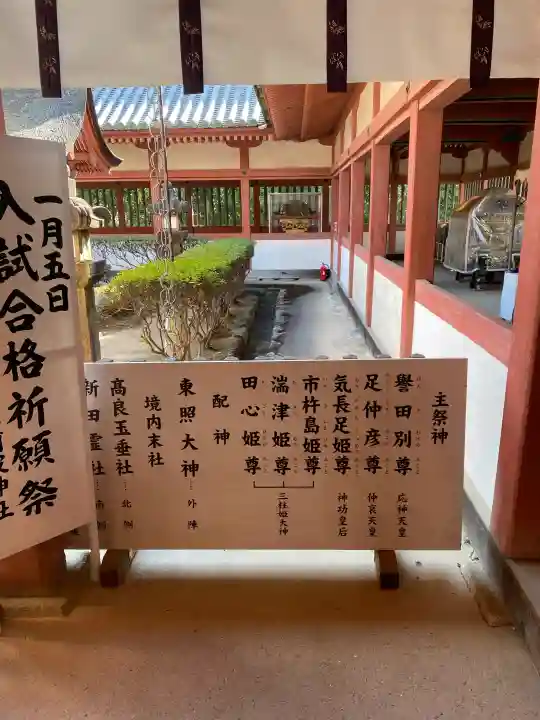 主祭神
誉田別尊 応神天皇
足仲彦尊 仲哀天皇
気長足姫尊 神功皇后
市杵島姫尊
湍津姫尊
田心姫尊
三柱姫大神
配神
東照大神…外陣
境内末社
高良玉垂社…北側
新田霊社…南側
一月五日
入試合格祈願祭
神社